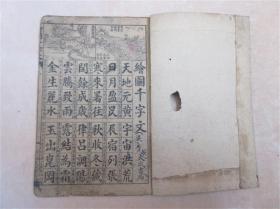 繪圖千字文
天地元黃 宇宙洪荒
日月盈昃 辰宿列張
寒來暑往 秋收冬藏
閏餘成歲 律呂調陽
雲騰致雨 露結為霜
金生麗水 玉出崑岡